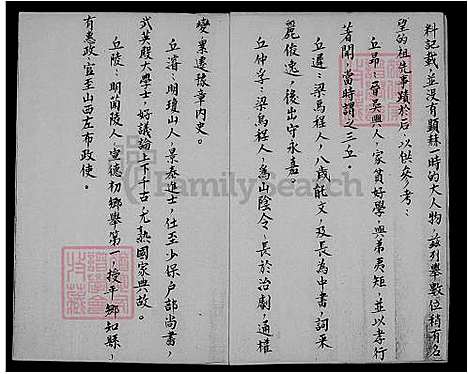 料記載,並沒有顯赫一時的大人物,茲列舉數位稍有名
望的祖先事蹟於后,以供參考:
丘昻:晉吳興人,家貧好學,與弟夷矩,並以孝行
著聞,當時謂之二丘。
丘遲:梁烏程人,八歲能文,及長為中書,詞采
麗俊逸,後出守永嘉
丘仲孚:梁烏程人,為山陰令,長於治劇,適權
變累遷豫章內史。
丘濬:明瓊山人,景泰進士,仕至少保戶部尚書,
武英殿大學士,好議論上下千古,尤熟國家典故。
丘陵:明蘭陵人,宣德初鄉舉第一,授平鄉知縣,
有惠政,官至山西左布政使。
FamilySearch